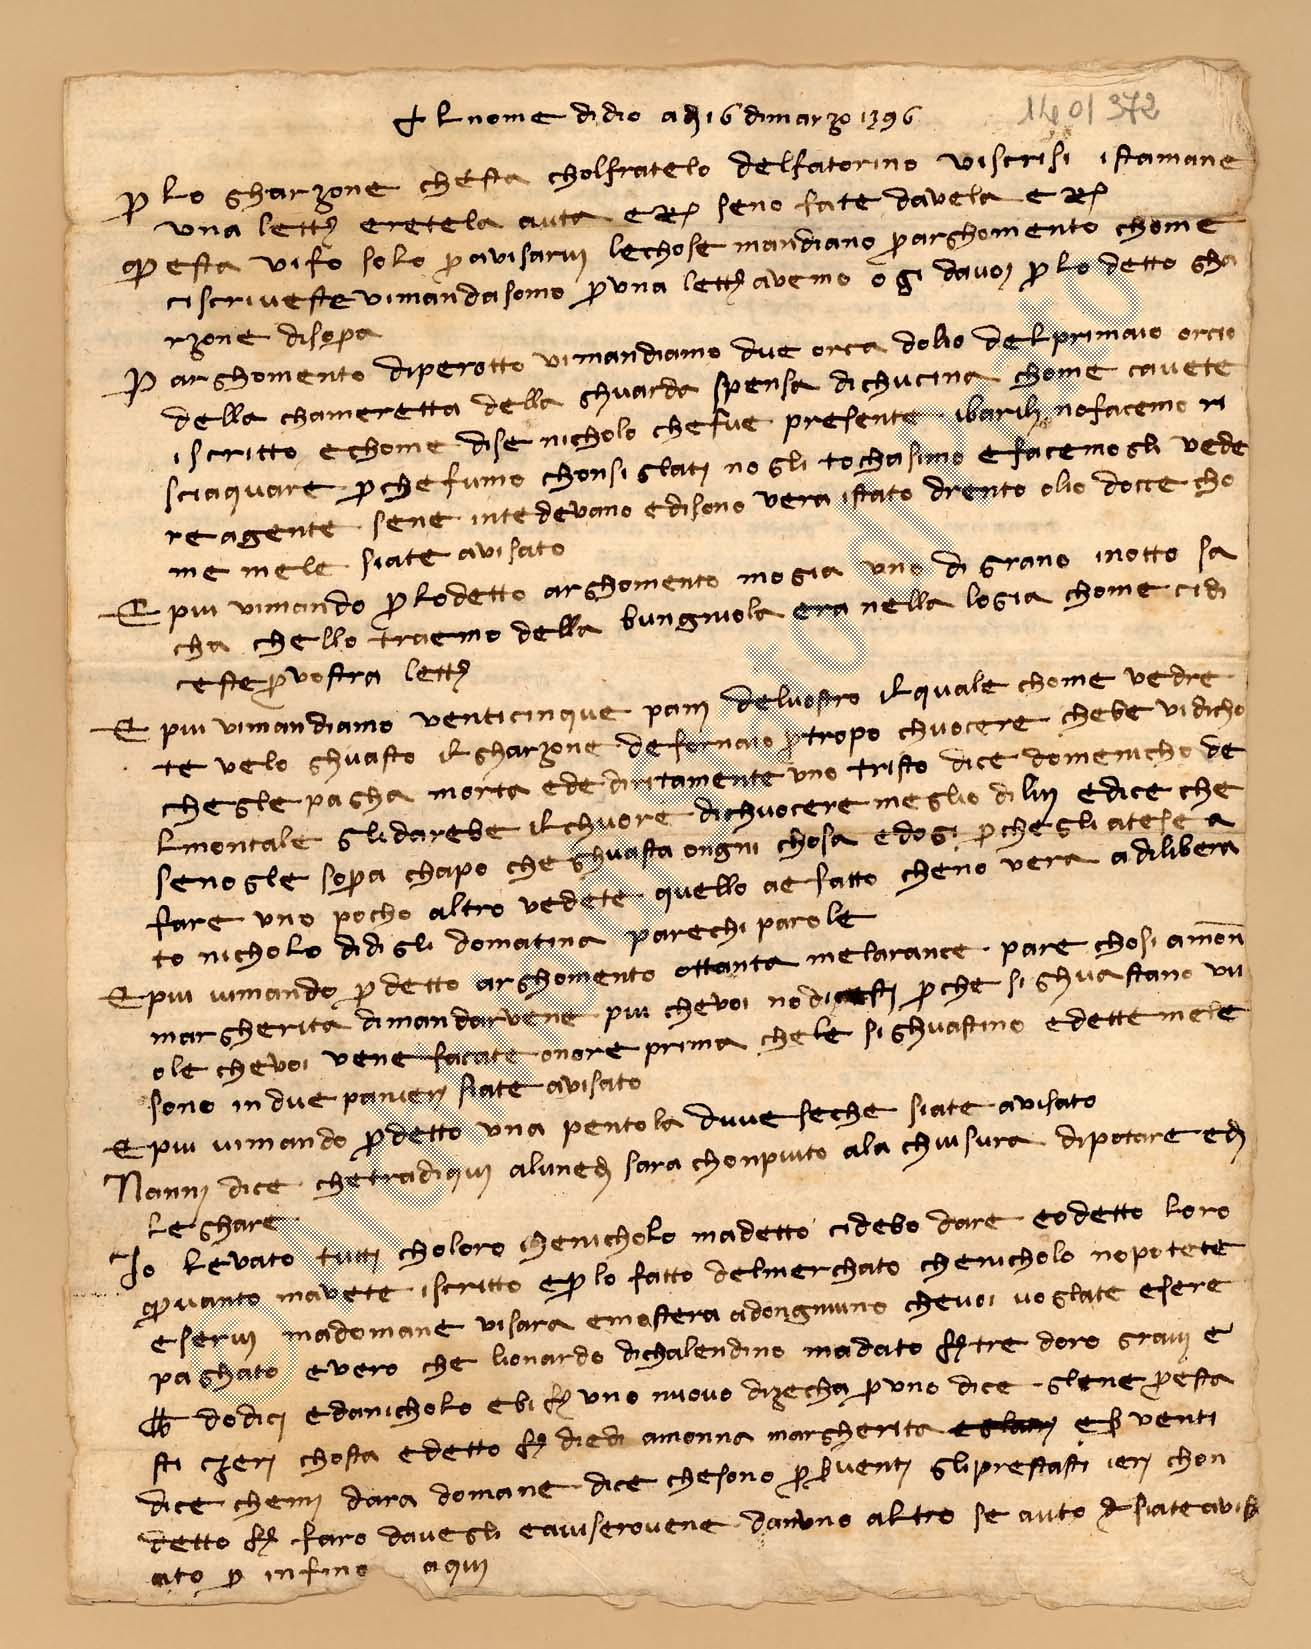 ✝ Al nome di dio a dì 16 di marzo 1396
1401372
P lo gharzone chesta cholfratelo delfatorino viscrisi istamane
una lett eretela auta e R seno fate davela e R
questa vifo solo p avisarvi lechose mandiano p arghomento chome
ciscriveste vimandasomo p una lett avemo ogi davoi p lo detto gha
rzone disopa
P arghomento diperotto vimandiamo due orca dolio delprimaio orcio
della chameretta della ghuarda spensa dichucina chome cavete
iscritto echome dise nicholo chefue presente ibarili nofacemo ri
sciaquare p chefumo chonsiglati nogli tochasimo efacemogli vede
re agente sene intedevano edisono vera istato drento olio docce cho
me mele siate avisato
E piu vimando p lodetto arghomento mogia uno di grano inotto sa
cha chello traemo della bungniola era nella logia chome cidi
ceste p vostra lett
E piu vimandiamo venticinque pani delvostro ilquale chome vedre
te velo ghuasto il gharzone defornaio p tropo chuocere chebe vidicho
chegle pagha morta ede diritamente uno tristo dice domenicho de
lmontale glidarebe il chuore dichuocere meglio dilui edice che
senogle sopa chapo che ghuasta ongni chosa edogi p chegli atese a
fare uno pocho altro vedete quello ae fatto cheno vera adilibera
to nicholo didigli domatina parechi parole
E piu vimando p detto arghomento ottanta melarance pare chosi amon
margherita dimandarvene piu chevoi nodicesti p che si ghuastano vu
ole chevoi vene facate onore prima chele si ghuastino edette mele
sono in due panieri siate avisato
E piu vimando p detto una pentola duve seche siate avisato
Nanni dice chetradiqui alunedi sara chonpiuto ala chiusura dipotare edi
leghare
Io levato tutti choloro chenicholo madetto cidebo dare eodetto loro
quanto mavete iscritto ep lo fatto delmerchato chenicholo nopotete
eservi madomane visara emostera adongniuno chevoi voglate esere
paghato evero che lionardo dichalendino madato f tre doro gravi e
dodici edanicholo ebi f uno nuovo dizecha p uno dice glene p esta
sti cieri chosta edetto f diedi amonna margherita eb venti
dice chemi dara domane dice chesono p b venti gliprestasti ieri chon
detto f faro davegli eaviserovene danuno altro se auto siate avis
ato p infino aqui